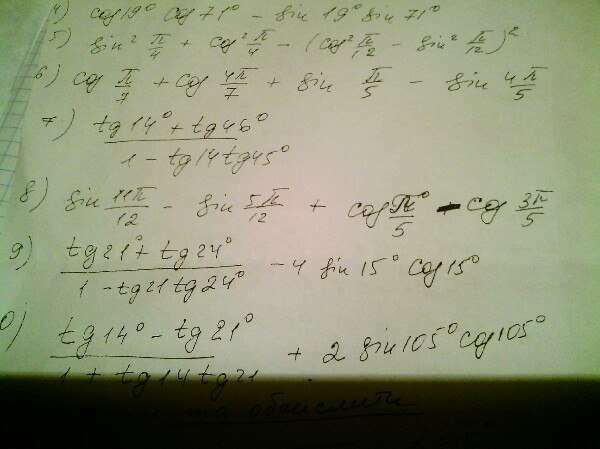 4) cos 19° cos 71° - sin 19° sin 71°
5) sin² π/4 + cos² π/4 - (cos² π/12 - sin² π/12)²
6) cos π/7 + cos 4π/7 + sin π/5 - sin 4π/5
7) (tg 14° + tg 46°) / (1 - tg 14 tg 45°)
8) sin 11π/12 - sin 5π/12 + cos π°/5 - cos 3π/5
9) (tg 21° + tg 24°) / (1 - tg 21 tg 24°) - 4 sin 15° cos 15°
0) (tg 14° - tg 21°) / (1 + tg 14 tg 21) + 2 sin 105° cos 105°
та обчислити